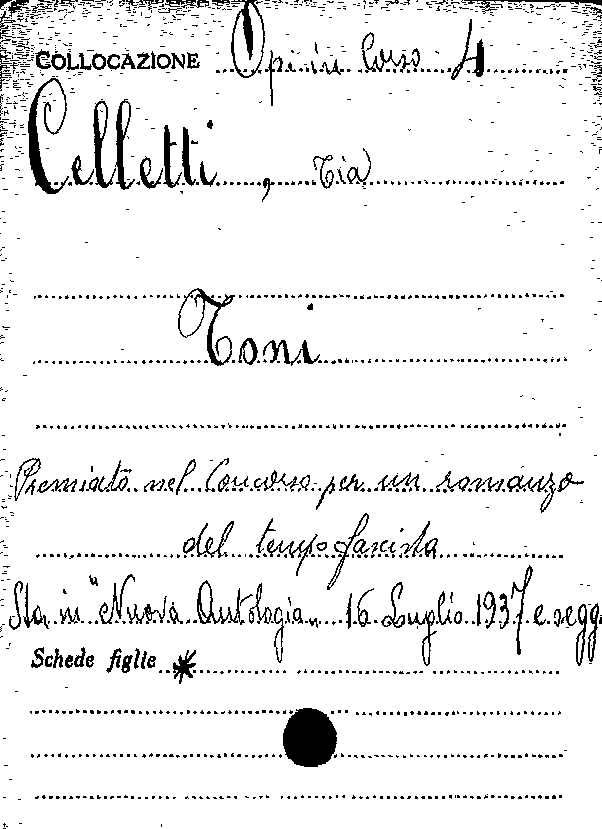 COLLOCAZIONE Op. in Corso 4
Celletti, Tia
Toni
Premiato nel Concorso per un romanzo
del tempo fascista
Sta in "Nuova Antologia" 16 Luglio 1937 e segg.
Schede figlie *